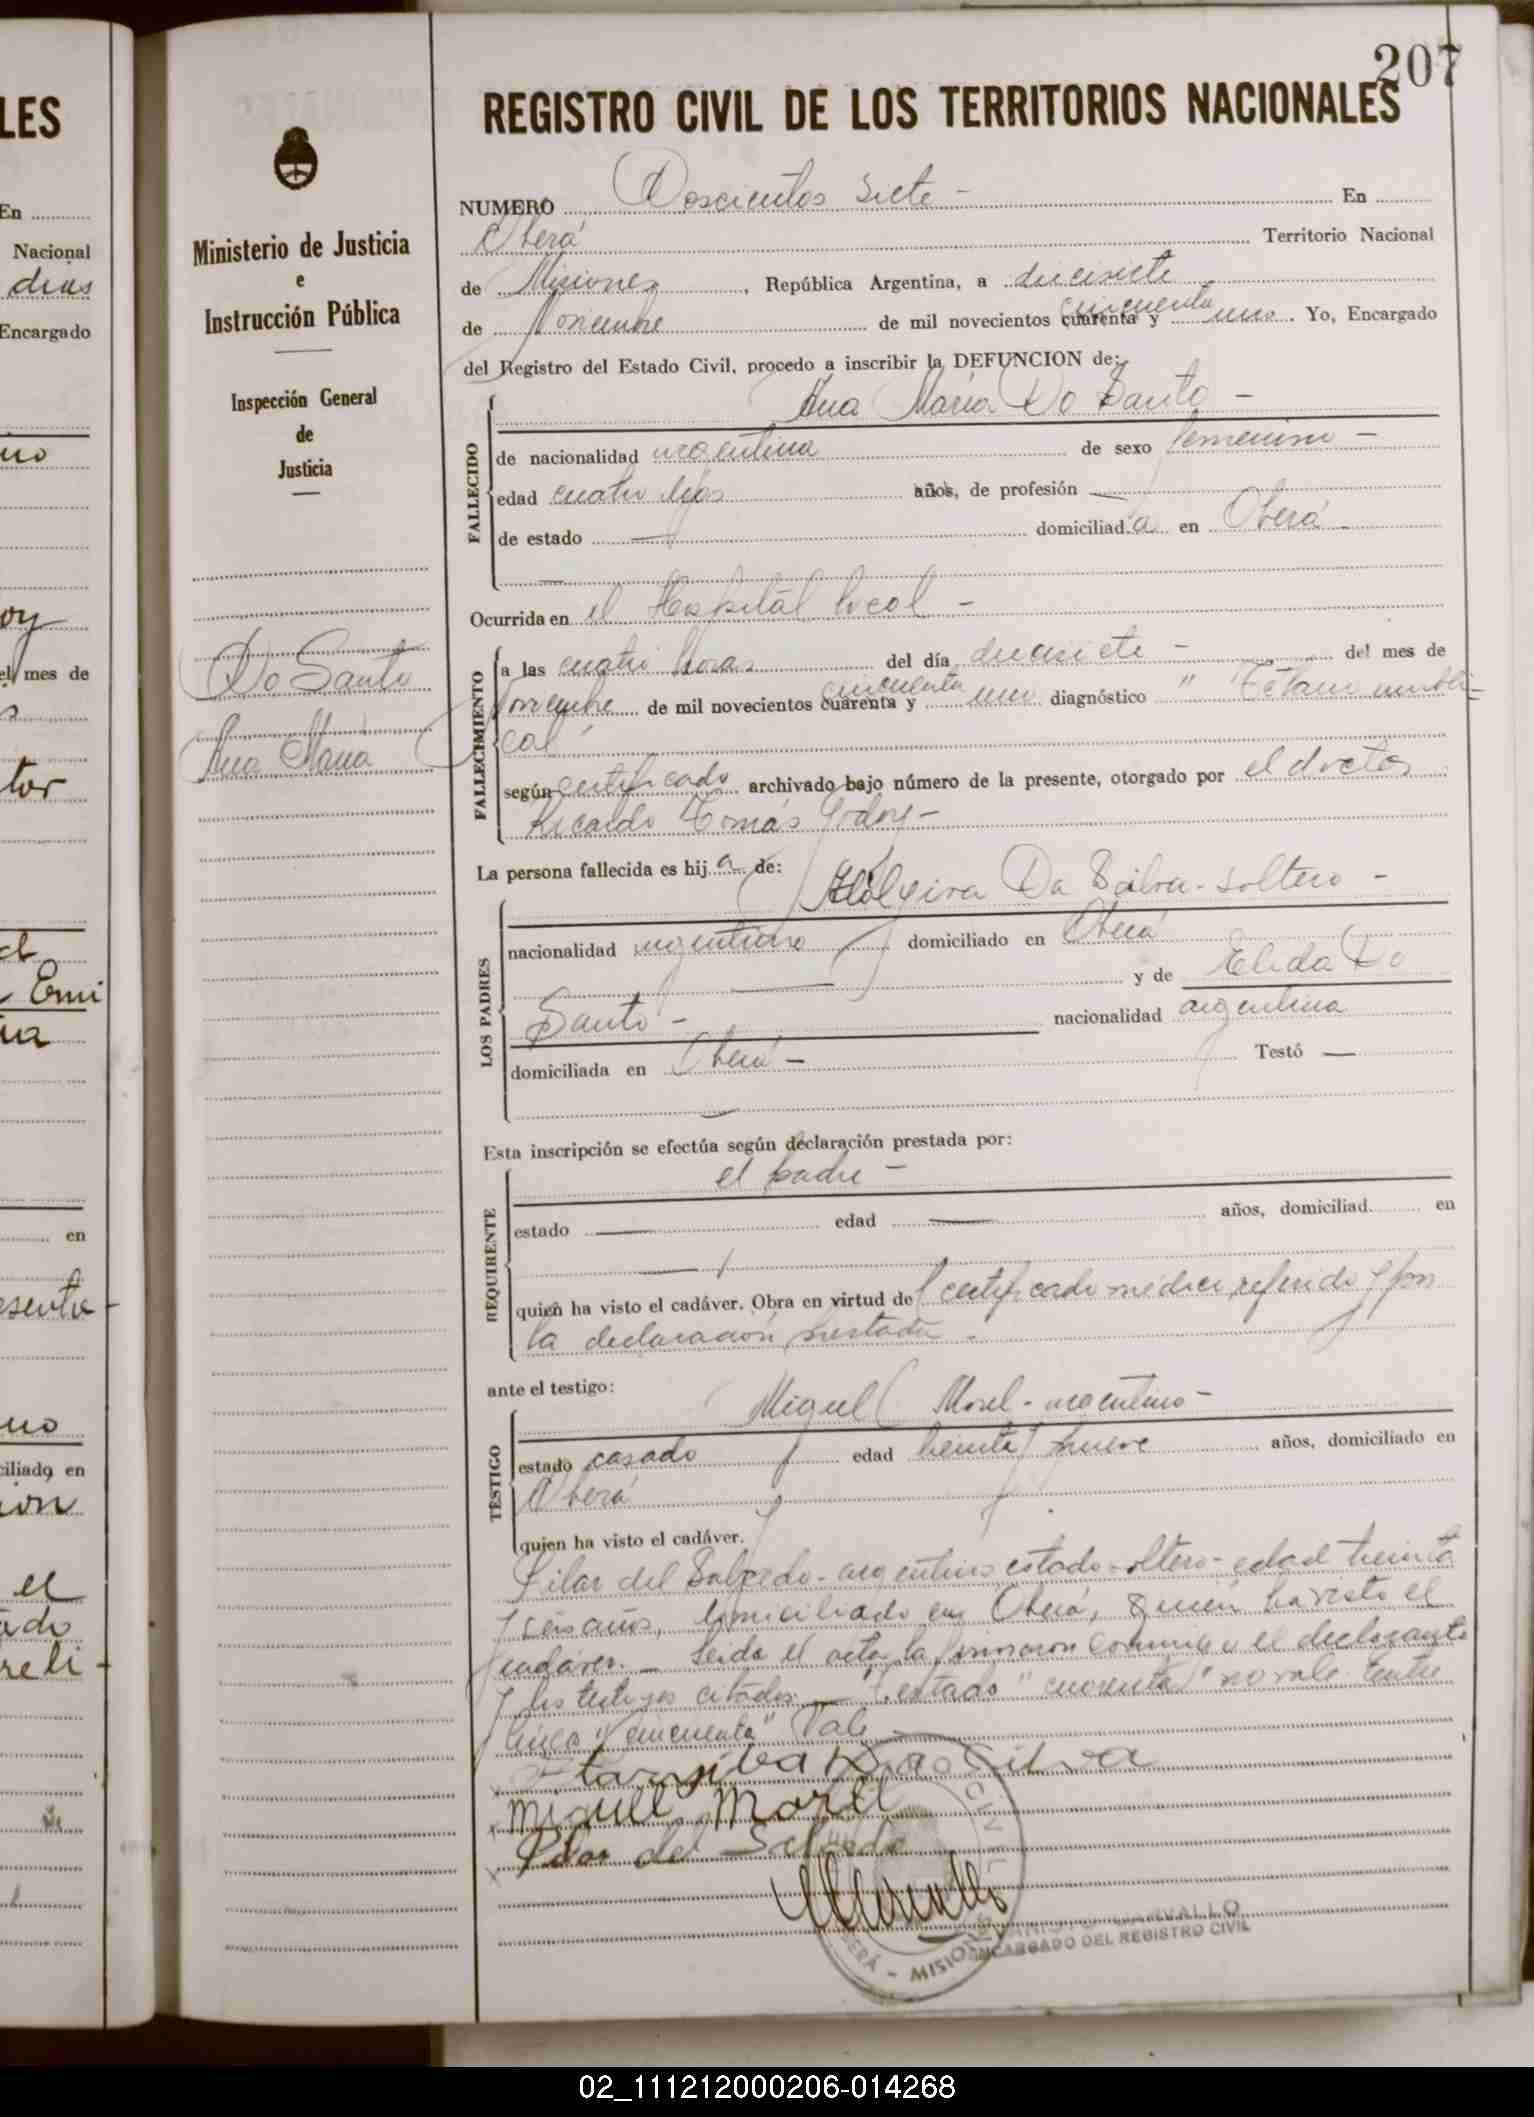 207
LES
REGISTRO CIVIL DE LOS TERRITORIOS NACIONALES
En
Nacional
dias
Encargado
Ministerio de Justicia
e
Instrucción Pública
Inspección General
de
Justicia
Do Santo
Ana María
NUMERO Doscientos siete - En
Oberá Territorio Nacional
de Misiones, República Argentina, a diecisiete
cincuenta
de Noviembre de mil novecientos cuarenta y uno. Yo, Encargado
del Registro del Estado Civil, procedo a inscribir la DEFUNCION de:
FALLECIDO
Ana María Do Santo -
de nacionalidad argentina de sexo femenino -
edad cuatro días años, de profesión —
de estado — domiciliad a en Oberá -
—
Ocurrida en el Hospital local -
FALLECIMIENTO
a las cuatro horas del día diecisiete - del mes de
cincuenta
Noviembre de mil novecientos cuarenta y uno diagnóstico "Tétano umbili-
cal"
según certificado archivado bajo número de la presente, otorgado por el doctor
Ricardo Tomás Godoy -
La persona fallecida es hij a de:
LOS PADRES
Da Silva - soltero -
nacionalidad argentino domiciliado en Oberá
— y de Elida Do
Santo - nacionalidad argentina
domiciliada en Oberá - Testó —
—
Esta inscripción se efectúa según declaración prestada por:
REQUIRENTE
el padre -
estado — edad — años, domiciliad en
—
quien ha visto el cadáver. Obra en virtud del certificado médico referido y por
la declaración prestada -
ante el testigo:
TESTIGO
Miguel Morel - argentino -
estado casado edad treinta y nueve años, domiciliado en
Oberá
quien ha visto el cadáver.
Pilar del Salcedo - argentino estado soltero - edad treinta
y seis años, domiciliado en Oberá, quien ha visto el
cadáver. - Leida el acta la firmaron conmigo el declarante
y los testigos citados. - Testado "cuarenta" no vale. Entre
línea "cincuenta" Vale -
Da Silva
Miguel Morel
Pilar del Salcedo
CIVIL
OBERÁ - MISIONES
CARVALLO
ENCARGADO DEL REGISTRO CIVIL
el mes de
tor
en
ciliado en
el
02_111212000206-014268